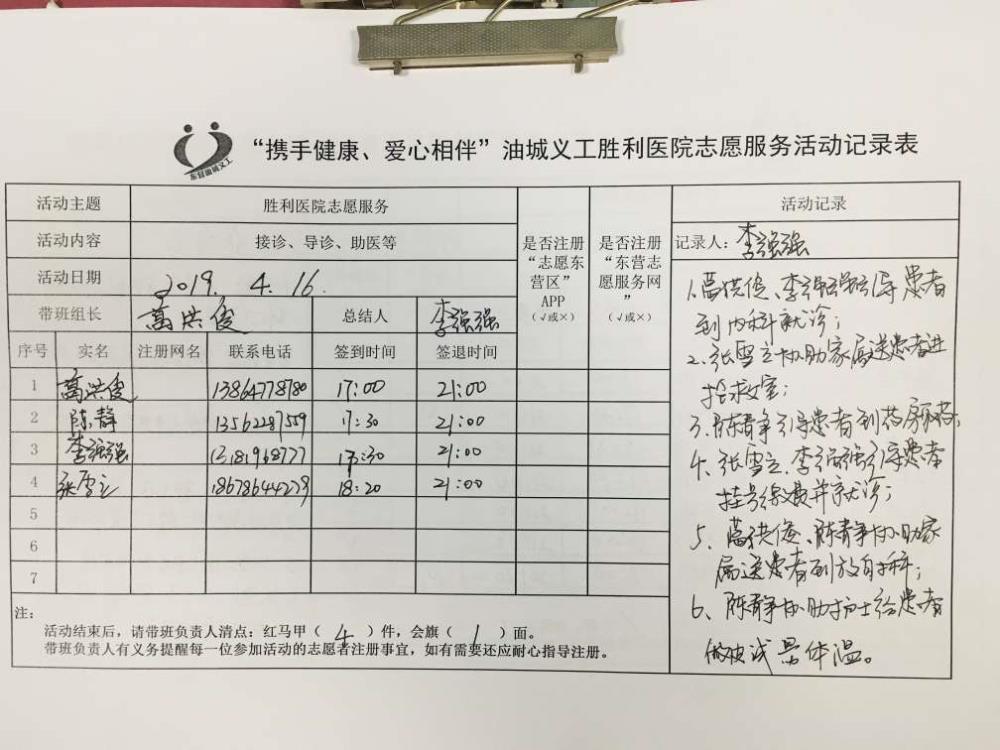 “携手健康、爱心相伴”油城义工胜利医院志愿服务活动记录表
东营油城义工
活动主题 胜利医院志愿服务
活动内容 接诊、导诊、助医等
活动日期 2019. 4. 16.
带班组长 葛洪俊 总结人 李强强
是否注册
“志愿东
营区”
APP
（√或×）
是否注册
“东营志
愿服务网
”
（√或×）
序号 实名 注册网名 联系电话 签到时间 签退时间
1 葛洪俊 13864778780 17:00 21:00
2 陈静 13562287559 17:30 21:00
3 李强强 13181968777 17:30 21:00
4 张雪立 18678644279 18:20 21:00
5
6
7
注：
活动结束后，请带班负责人清点：红马甲（ 4 ）件，会旗（ 1 ）面。
带班负责人有义务提醒每一位参加活动的志愿者注册事宜，如有需要还应耐心指导注册。
活动记录
记录人：李强强
1.葛洪俊、李强强引导患者
到内科就诊；
2.张雪立协助家属送患者进
抢救室；
3.陈静引导患者到药房取药；
4、张雪立、李强强引导患者
挂号缴费并就诊；
5、葛洪俊、陈静协助家
属送患者到放射科；
6、陈静协助护士给患者
做皮试量体温。